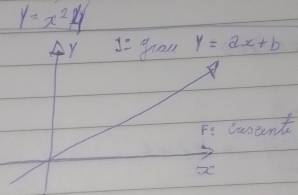 Y = x²
Y
1º grau Y = ax+b
F: crescente
x